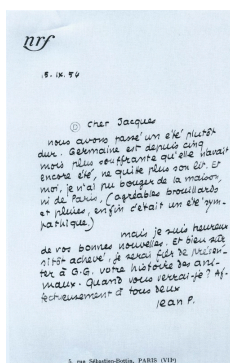 nrf
15. IX. 54
cher Jacques
nous avons passé un été plutôt
dur. Germaine est depuis cinq
mois plus souffrante qu'elle n'avait
encore été, ne quitte plus son lit. Et
moi, je n'ai pu bouger de la maison,
ni de Paris, (agréables brouillards
et pluies, enfin c'était un été sym-
pathique.)
mais je suis heureux
de vos bonnes nouvelles. Et bien sûr
sitôt achevé, je serai fier de présen-
ter à G.G. votre histoire des ani-
maux. Quand vous verrai-je ? Af-
fectueusement à tous deux
Jean P.
5, rue Sébastien-Bottin, PARIS (VIIe)